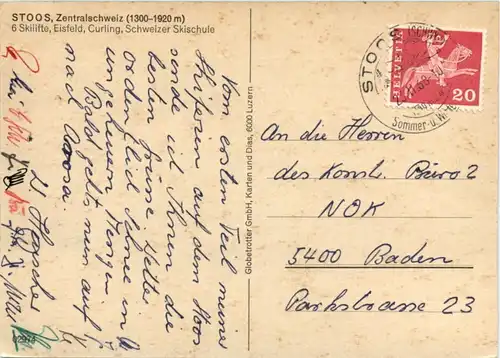 STOOS, Zentralschweiz (1300–1920 m)
6 Skilifte, Eisfeld, Curling, Schweizer Skischule
Vom ersten Teil meiner
Skiferien auf dem Stoos
sende ich Ihnen die
besten Grüsse. Wetter
ordentlich. Schnee in
ungeheuren Mengen.
Bald geht's nun auf
nach Arosa.
Globetrotter GmbH, Karten und Dias, 6000 Luzern.
02974
STOOS
Sommer- u.
HELVETIA
20
An die Herren
des Konstr. Büro 2
NOK
5400 Baden
Parkstrasse 23